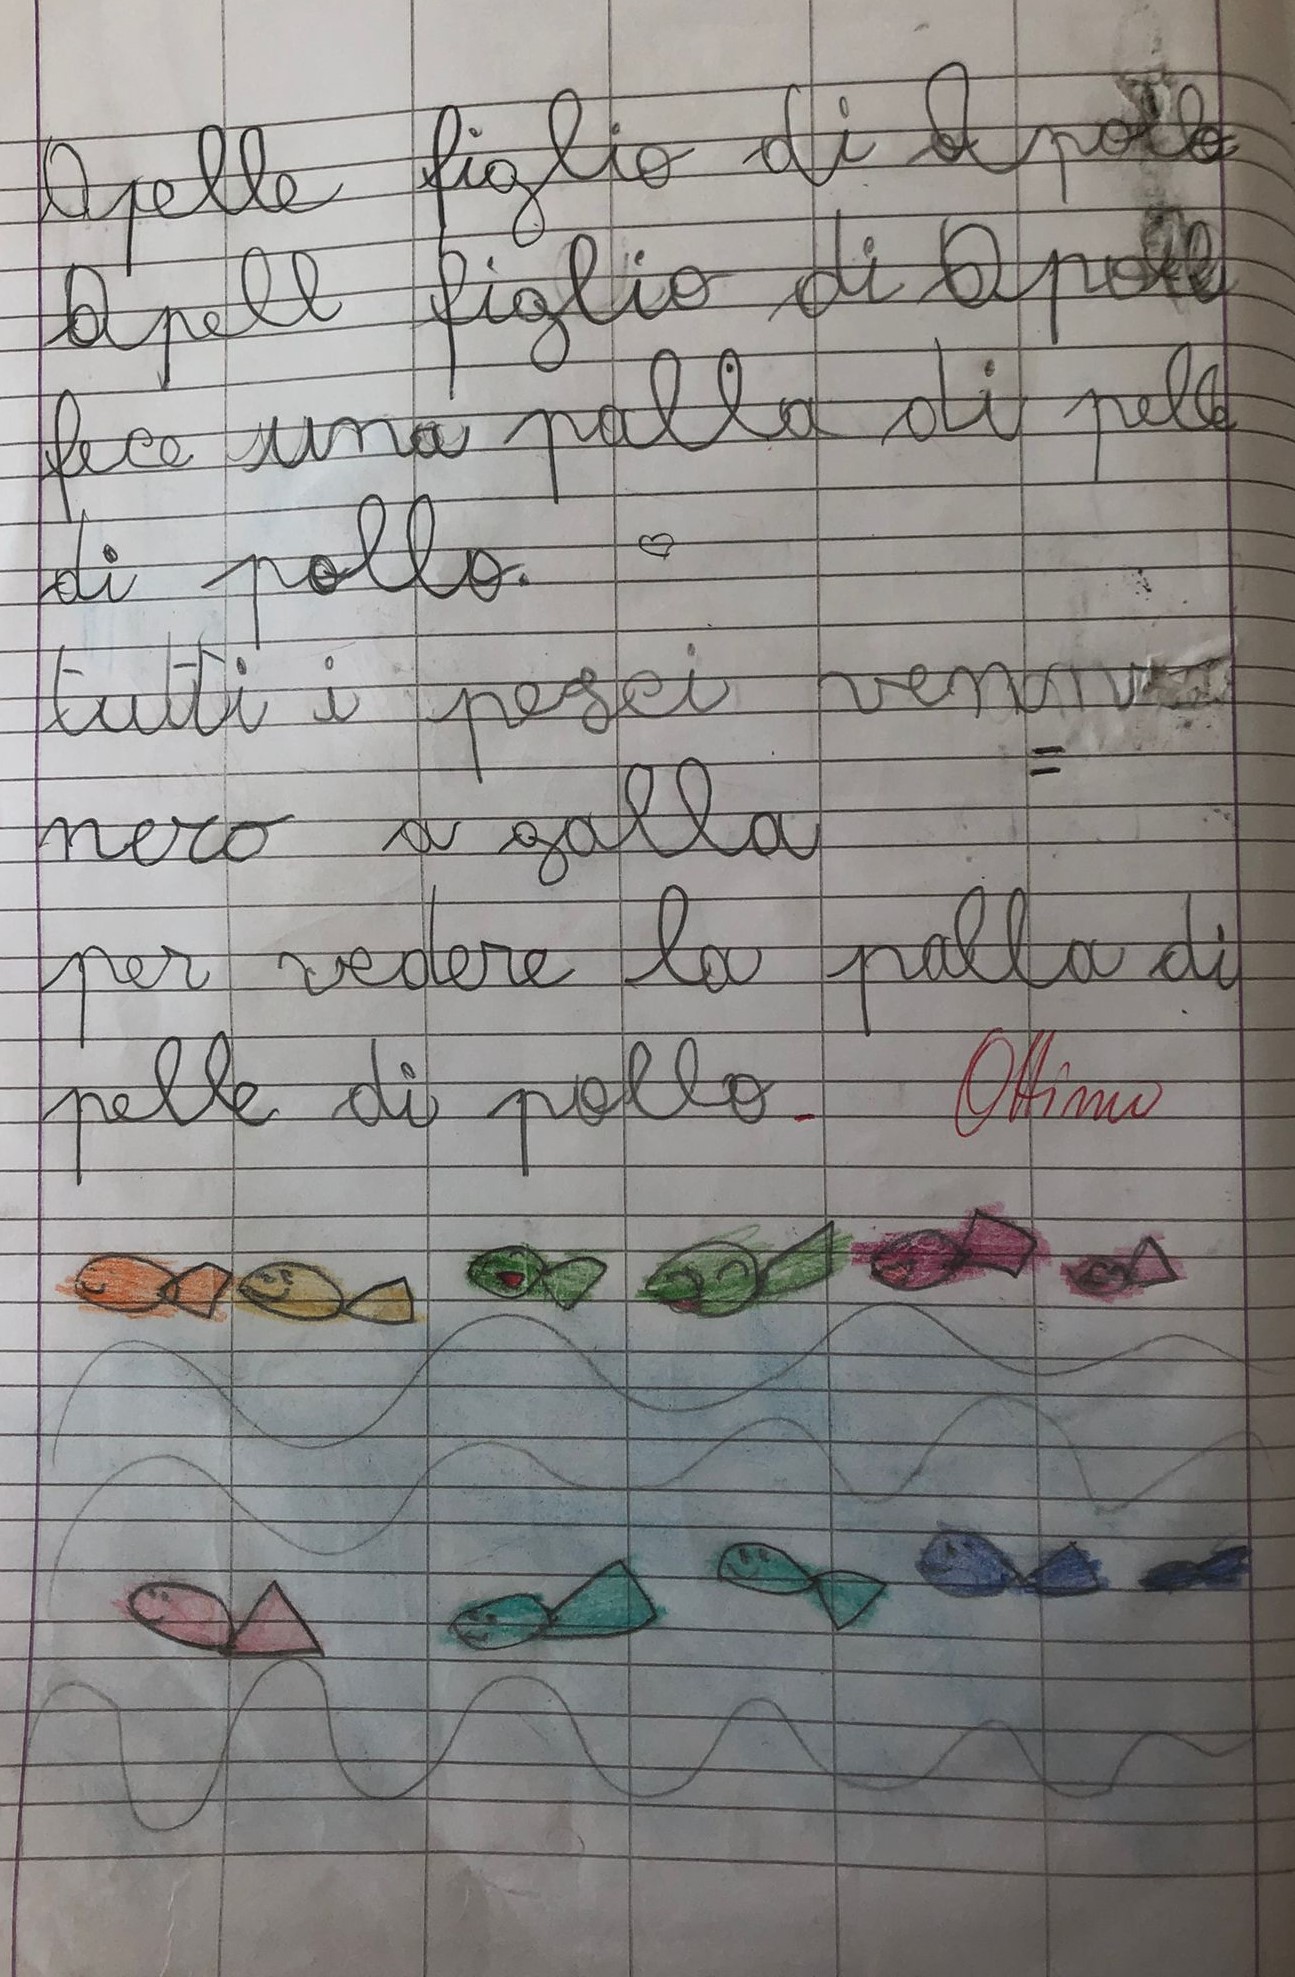 Apelle figlio di Apollo
Apell figlio di Apoll
fece una palla di pelle
di pollo.
tutti i pesci venn
=
nero a galla
per vedere la palla di
pelle di pollo. Ottimo